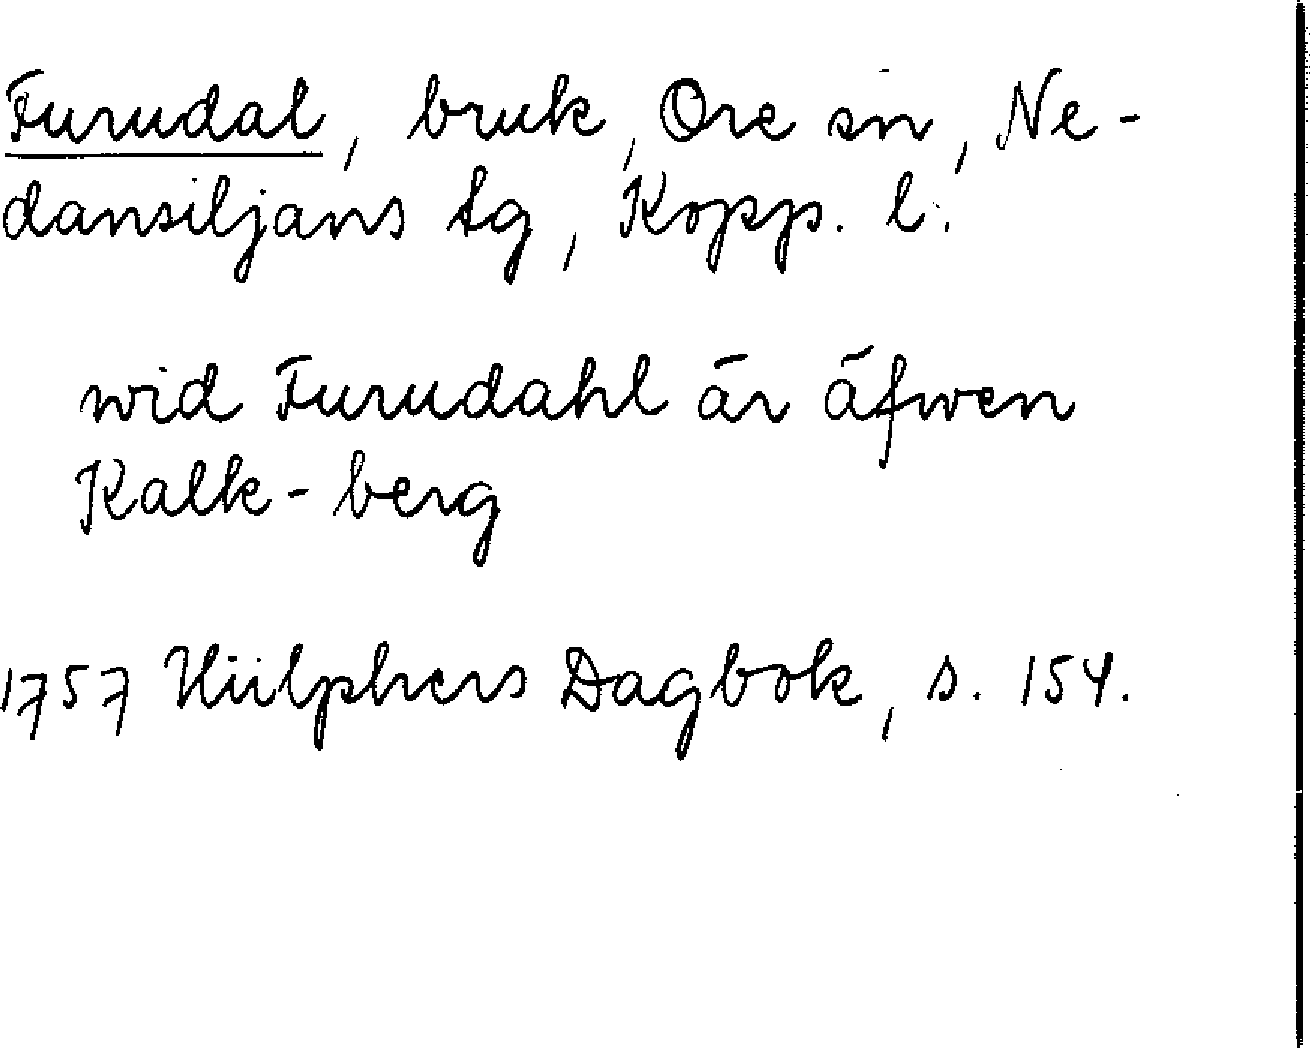 Furudal, bruk, Ore sn, Ne-
dansiljans tg, Kopp. l.
wid Furudahl är äfwen
Kalk-berg
1757 Hülphers Dagbok, s. 154.